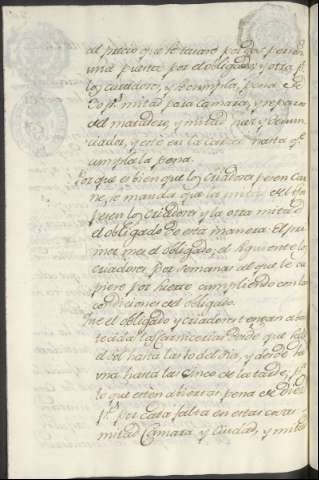 el precio que se tasare por dos personas
una puesta por el obligado, y otra pr.
los criadores, y se cumpla, pena de
mitad para Camara, y reparos
del matadero, y mitad Juez y denun
ciador, y este en la Carcel hasta qe.
cumpla la pena.
Porque es bien que los criadores pesen Car
ne, se manda que la mitad del año
pesen los criadores y la otra mitad
el obligado de esta manera: El pri
mer mes el obligado, el siguiente los
criadores por semanas al que le cu
piere por suerte cumpliendo con las
condiciones del obligado.
Que el obligado y criadores tengan abas
tecidas las Carnicerias desde que sale
el sol hasta las 10 del dia, y desde la
una hasta las cinco de la tarde, pr.
lo que esten abiertas pena de diez
rs. por cada falta en estas cosas
mitad Camara y Ciudad, y mitad